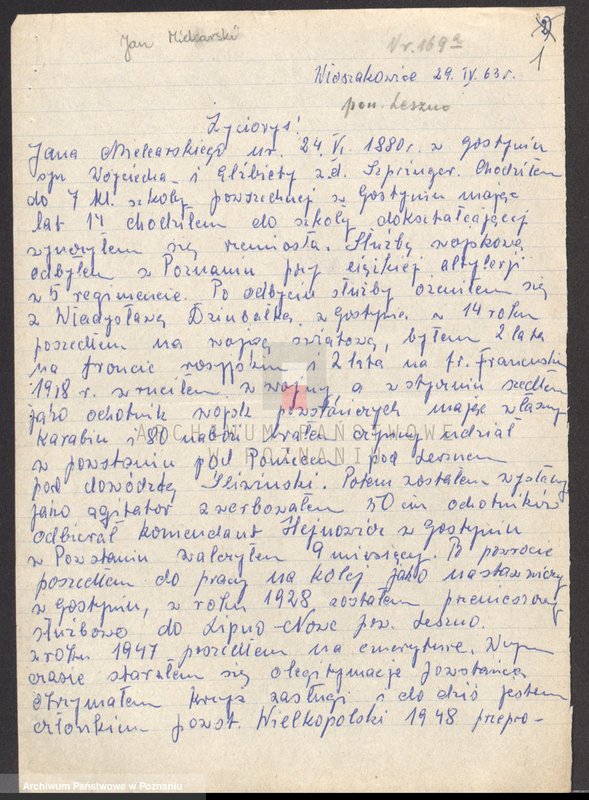 Jan Mielcarski
Nr. 169a
2
1
Wioszakowice 29. IV. 63 r.
pow. Leszno
Życiorys!
Jana Mielcarskiego ur. 24. VI. 1880r. w Gostyniu
syn Wojciecha i Elżbiety z d. Szpringer. Chodziłem
do 7 kl. szkoły powszechnej w Gostyniu mając
lat 14 chodziłem do szkoły dokształcającej
wyuczyłem się rzemiosła. Służbę wojskową
odbyłem w Poznaniu przy ciężkiej altylerji
w 5 regimencie. Po odbyciu służby ożeniłem się
z Władysławą Dziubałką w Gostyniu. w 14 roku
poszedłem na wojnę światową, byłem 2 lata
na froncie rosyjskim i 2 lata na fr. Francuskim
1918 r. wruciłem z wojny a w styczniu szedłem
jako ochotnik wojsk powstańczych mając własny
karabin i 80 naboi brałem czynny udział
w powstaniu pod Poniecem pod Lesznem
pod dowódzcą Śliwiński. Potem zostałem wysłany
jako agitator zwerbowałem 50 ciu ochotników
odbierał komendant Hejnowicz w Gostyniu
w Powstaniu walczyłem 9 miesięcy. Po powrocie
poszedłem do pracy na kolej jako nastawniczy
w Gostyniu, w roku 1928 zostałem przeniesiony
służbowo do Lipno-Nowe pow. Leszno.
w roku 1947 poszedłem na emeryturę. W tym
czasie starałem się o legitymacje powstańca
otrzymałem krzyż zasługi i do dziś jestem
członkiem powst. Wielkopolski 1948 przepro-
ARCHIWUM PAŃSTWOWE
W POZNANIU
Archiwum Państwowe w Poznaniu